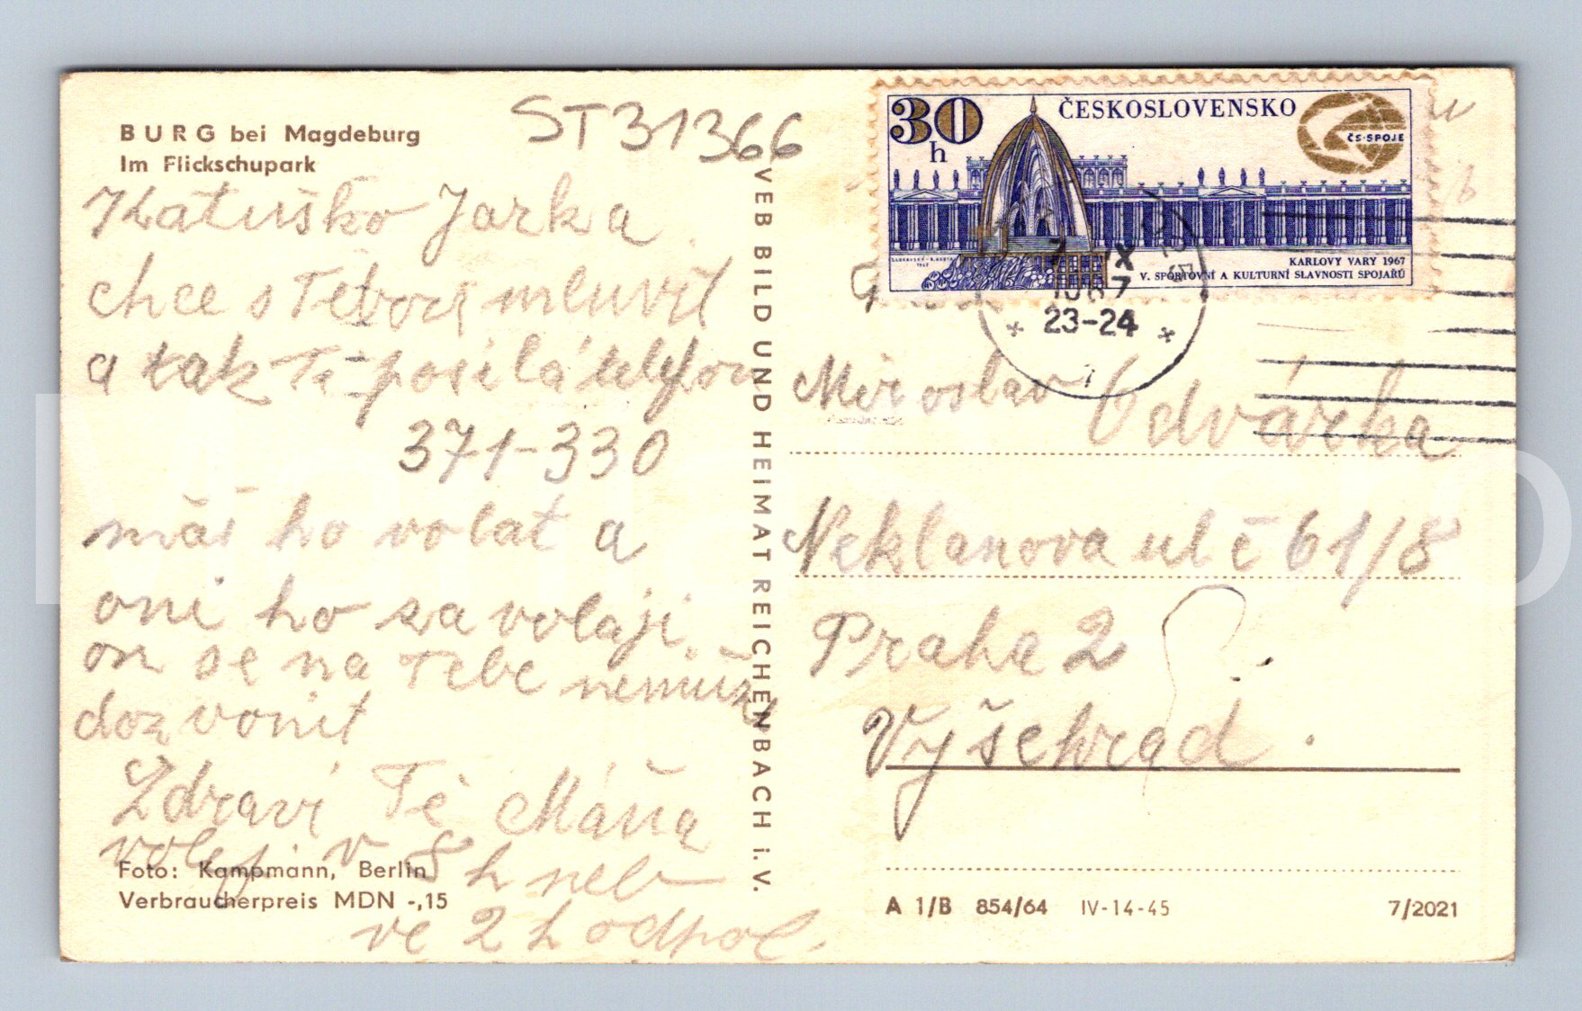 BURG bei Magdeburg
Im Flickschupark
ST31366
Katuško Jarka
chce s Tebou mluvit
a tak Ti posílá telefon
371-330
máš ho volat a
oni ho zavolají.
on se na Tebe nemůže
dozvonit
Zdraví Tě Máňa
volej v 8 h neb
ve 2 h odpol.
Foto: Kampmann, Berlin
Verbraucherpreis MDN -,15
VEB BILD UND HEIMAT REICHENBACH i. V.
30 h
ČESKOSLOVENSKO
ČS·SPOJE
KARLOVY VARY 1967
V. SPORTOVNÍ A KULTURNÍ SLAVNOSTI SPOJAŘŮ
7 IX
1967
23-24
1
Miroslav Odvárka
Neklanova ul č 61/8
Praha 2
Vyšehrad.
A 1/B 854/64 IV-14-45 7/2021